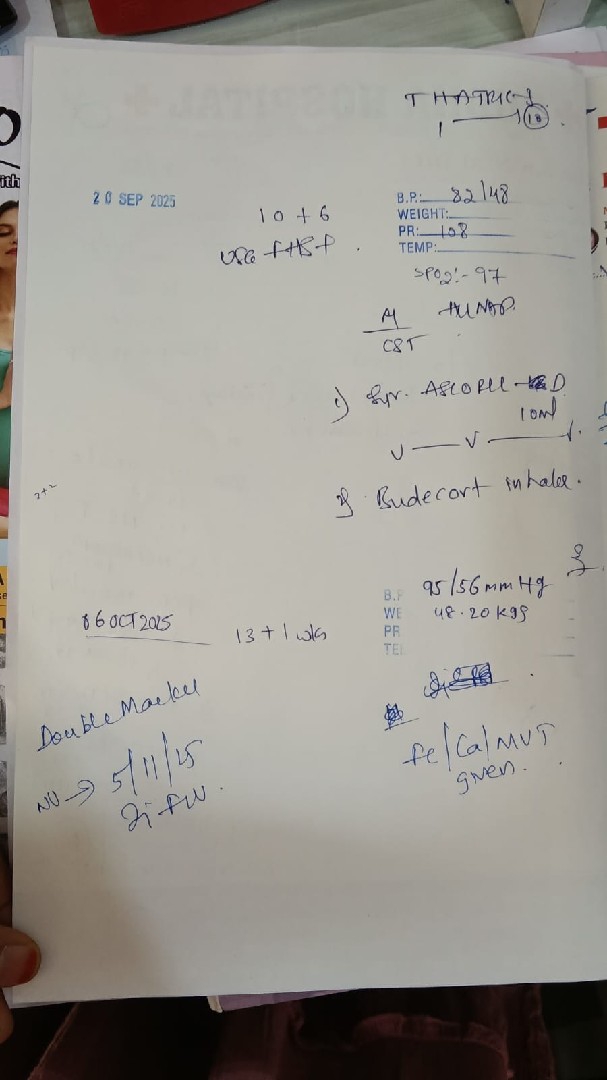 THATRIC-1
1 10
20 SEP 2025
B.P.: 82/48
WEIGHT:
10 + 6
PR: 108
USG FHS +
TEMP:
SPO2:- 97
CST
1) Syr. ASCORIL - D
10ml
Budecort inhaler.
2+2
06 OCT 2025
B.P 95/56 mmHg
WE 48.20 kgs
13 + 1 wks
PR
TE
Double Marker
Fe/Ca/MVT
given.
NV → 5/11/25